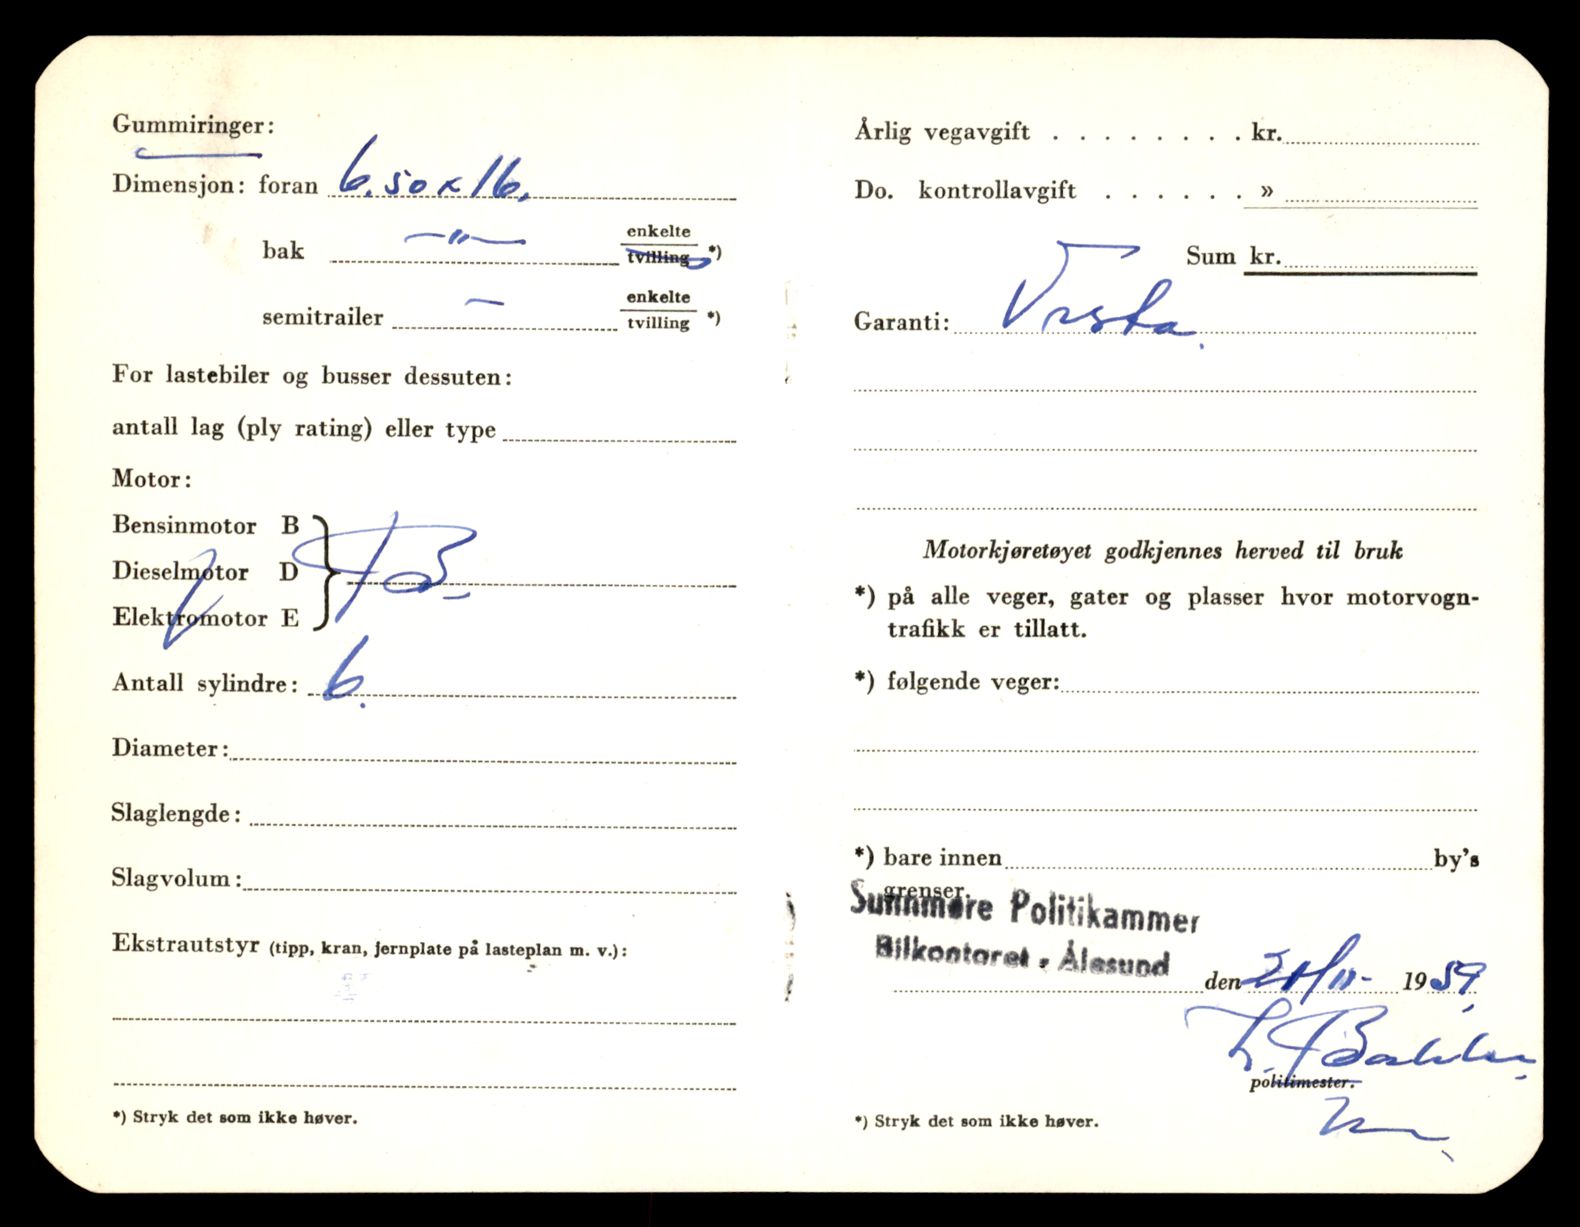 Gummiringer:
Dimensjon: foran 6.50 x 16.
bak —"— enkelte
tvilling *)
semitrailer — enkelte
tvilling *)
For lastebiler og busser dessuten:
antall lag (ply rating) eller type
Motor:
Bensinmotor B
Dieselmotor D B
Elektromotor E
Antall sylindre: 6.
Diameter:
Slaglengde:
Slagvolum:
Ekstrautstyr (tipp, kran, jernplate på lasteplan m. v.):
*) Stryk det som ikke høver.
Årlig vegavgift . . . . . . . . kr.
Do. kontrollavgift . . . . . . »
Sum kr.
Garanti: Ørsta.
Motorkjøretøyet godkjennes herved til bruk
*) på alle veger, gater og plasser hvor motorvogn-
trafikk er tillatt.
*) følgende veger:
*) bare innen by's
grenser.
Sunnmøre Politikammer
Bilkontoret - Ålesund
den 21/11- 1959.
politimester.
*) Stryk det som ikke høver.